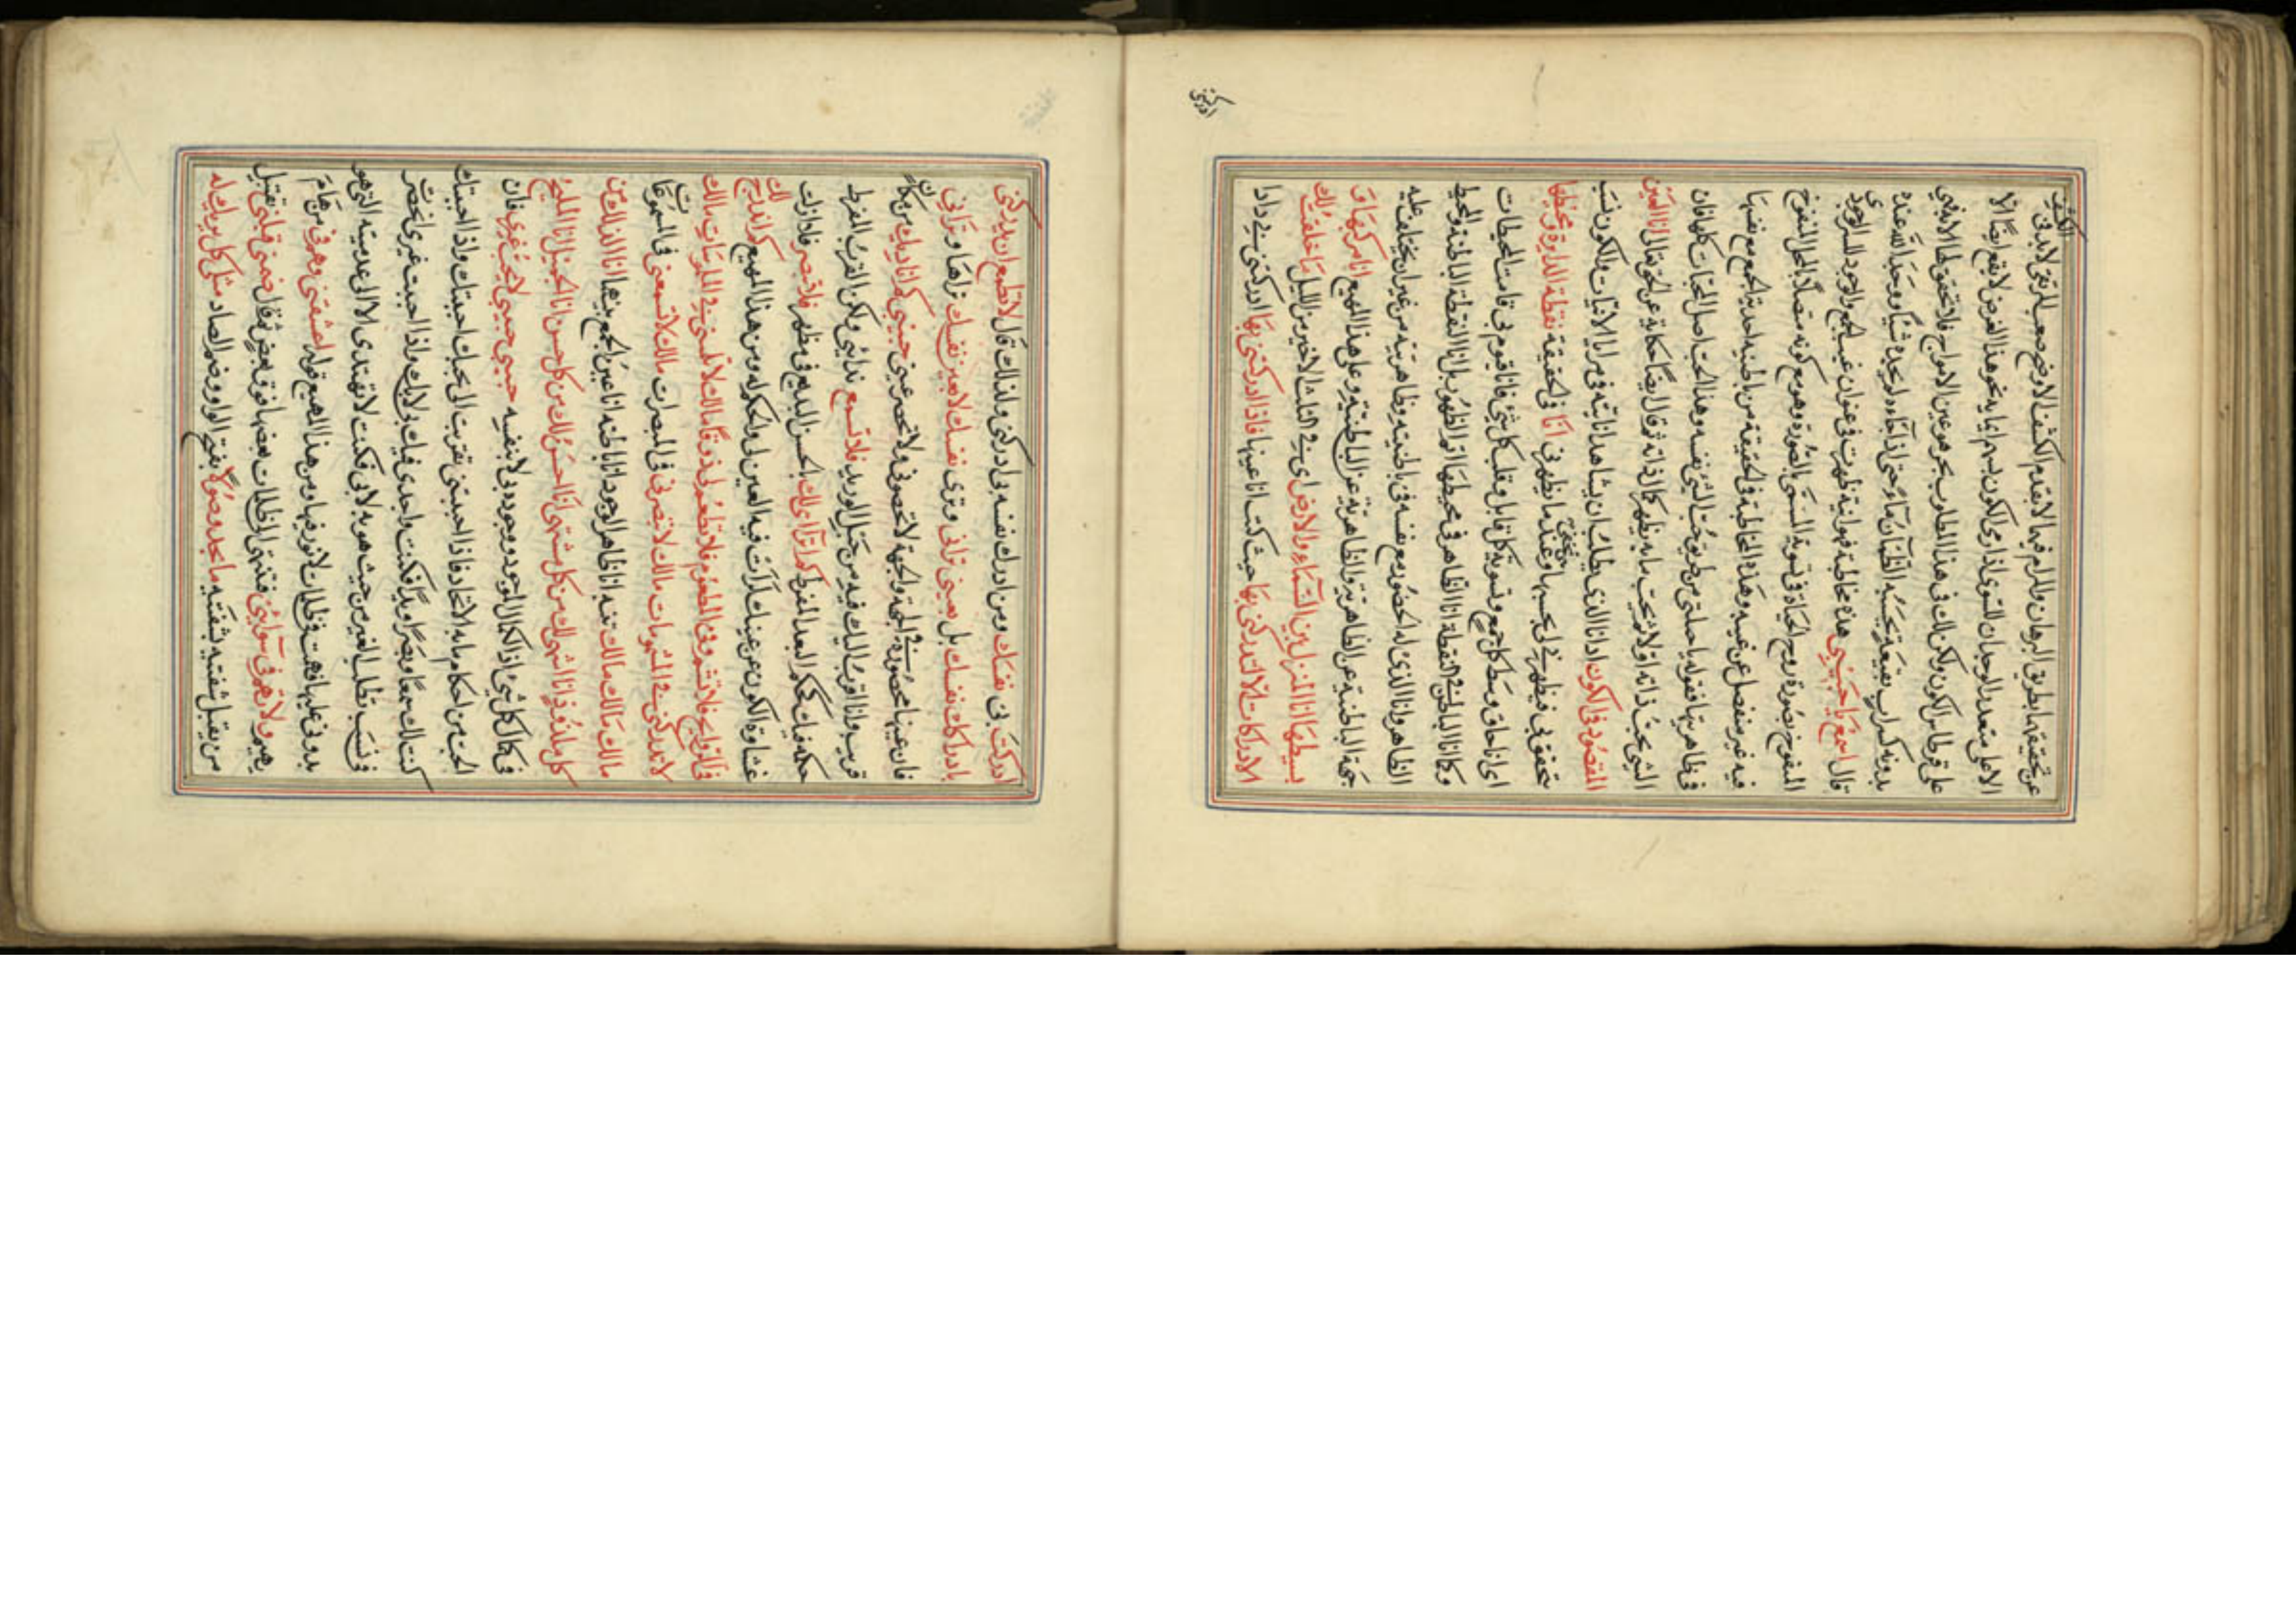 عن تحقيقها بطريق البرهان والمرام فيها لا بقدم الكشف الاوضح صعب المرتقى لا بد في الكشف
الاعلى متعذر الوجدان للسوى اذ ارى الكون يسم اية نحو هذا الغرض لا يقع ايضا الا
على قرطاس الكون ولكن لك في هذا المطلوب بحر هو عين الامواج فلا تحقق لها الا به فهي
بدونه كسراب بقيعة يحسبه الظمآن ماء حتى اذا جاءه لم يجده شيئا ووجد الله عنده
قال اسمع يا حبيبي هذه مخاطبة فهوانية ظهرت في عنوان غيب الجمع والوجود للسر الوجودي
المنفوخ بصورة روح الحياة في تسوية المسمى بالصورة وهو مع كونه متصلا بالمحل المنفوخ
فيه غير منفصل عن غيبه وهذه المخاطبة في الحقيقة من باطنية احدية الجمع مع نفسها
في ظاهريتها فقوله يا حبيبي من طريق حب الشيء نفسه وهذا الحب اصل المحبات كلها فان
الشيء يحب ذاته اولا ثم يحب ما به يظهر كمال ذاته ثم قال ايضا حكاية عن الحق تعالى انا العين
المقصود في الكون اذ انا الذي يطلب ان يشاهد انايته في مرايا الانيات والكون نسب
تحققت بي فيظهر لي بحسبها وعند ما يظهر بي يختفي انا في الحقيقة نقطة الدايرة ومحيطها
اي انا حاق وسط كل جمع وتسوية كل قابل وقلب كل شيء فانا قيوم بي قامت المحيطات
وكما انا الباطن في النقطة انا الظاهر في محيطها اثر الظهور بل انا النقطة الباطنة والمحيط
الظاهر وانا الذي له الحضور مع نفسه في باطنيته وظاهريته من غير ان يختلف عليه
جهة الباطنية عن الظاهرية والظاهرية عن الباطنية وعلى هذا المهيع انا مركبها و
بسيطها انا الامر المنزل بين السماء والارض اي في الثلث الاخير من الليل ما خلقت لك
الادراكات الا لتدركني بها حيث كنت انا عينها فاذا ادركتني بها ادركتني
ادركت بي نفسك ومن ادرك نفسه بي ادركني ولذلك قال لا تطمع ان تدركني
بادراكك نفسك بل بعيني تراني وترى نفسك لا بعين نفسك تراها وتراني
فان عينها محصورة في الجهة والجهة لا تحصرني ولا تحصر عيني حبيبي كم اناديك من مكان
قريب وانا اقرب اليك فيه من حبل الوريد فلا تسمع ندائي ولكن القرب المفرط
حكمه فيك كحكم البعد المفرط كم اتراءى لك بالحسن البديع في مظهر فلا تبصر فاذا زلت
غشاوة الكون عن عينك كنت فيه العين لي والحكم له ومن هذا المهيع كم اندرج لك
في الروايح فلا تشم وفي الطعوم فلا تطعم لي ذوقا مالك لا تلمسني في الملموسات مالك
لا تدركني في المشمومات مالك لا تبصرني في المبصرات مالك لا تسمعني في المسموعات
مالك مالك مالك تنبه انا ظاهر الوجود انا باطنه انا عين الجمع بينهما انا الذ لك من
كل ملذوذ انا اشهى لك من كل مشتهى انا احسن لك من كل حسن انا الجميل انا المليح
في كمال كل شيء اذ الكمال للوجود ووجوده لي لا بنفسه حبيبي حبيبي لا تحب غيري فان
الحب من احكام ما به الاتحاد فاذا احببتني تقربت الى بحبك احببتك واذا احببتك
كنت لك سمعا وبصرا ويدا فكنت واجدي فيك بي لا بك واذا احببت غيري انحصرت
في نسب تطلب الغير من حيث هو به لا بي فكنت لا تهتدي الا الى عدميته التي هو
بدوني عليها فهمت في ظلمات لا نور فيها ومن هذا المهيع قوله اعشقني وهم في من هام
يهيم ولا تهم في سوائي فتنتهي الى ظلمات بعضها فوق بعض ثم قال ضمني قبلني تقبيل
من يقبل شفتيه بشفتيه ما تجد وصولا بفتح الواو وضم الصاد مثلي كل يريدك له
ادركت